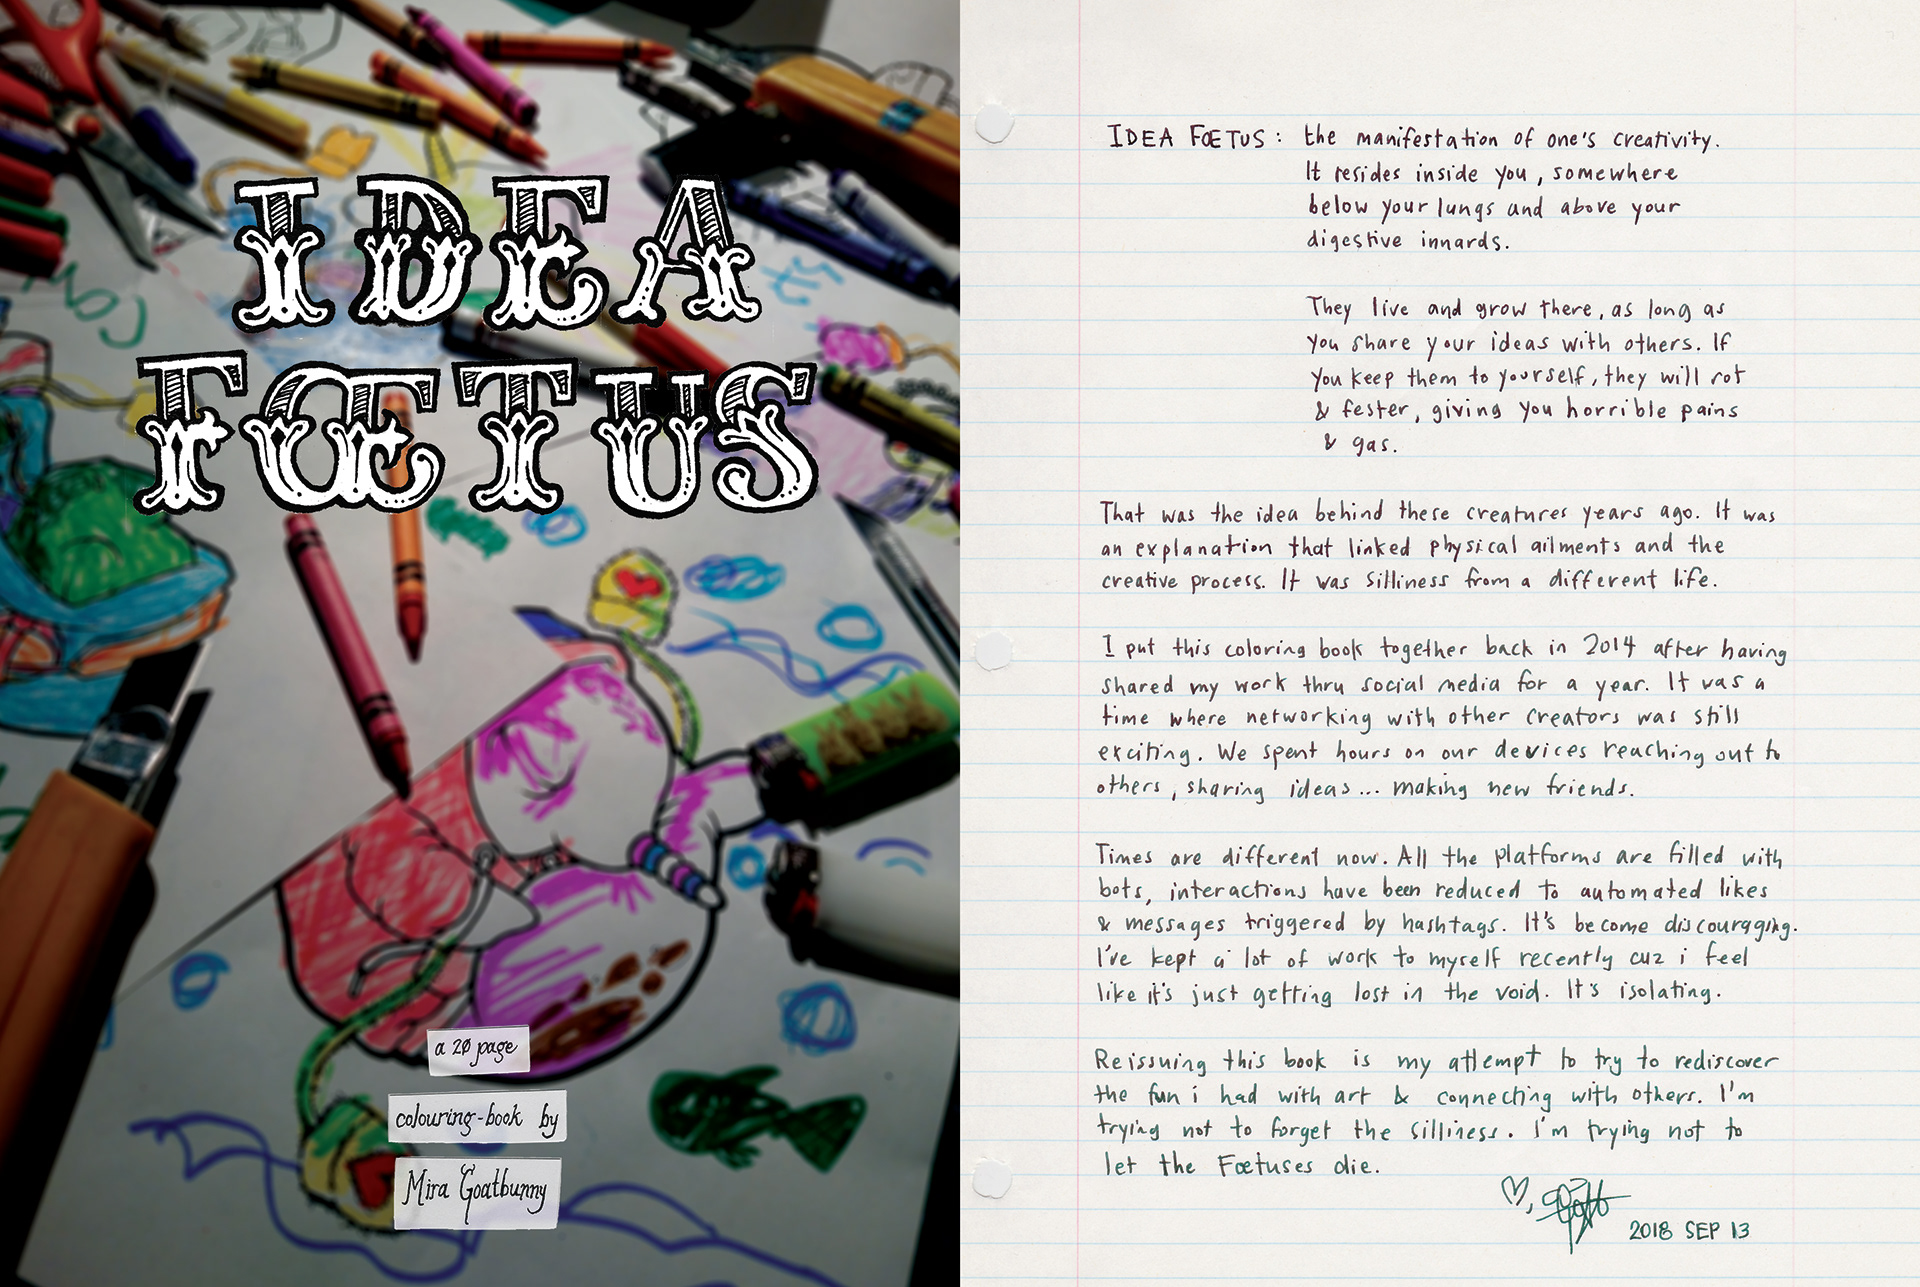 IDEA
FŒTUS
a 20 page
colouring-book by
Mira Goatbunny
IDEA FŒTUS: the manifestation of one's creativity.
It resides inside you, somewhere
below your lungs and above your
digestive innards.
They live and grow there, as long as
you share your ideas with others. If
you keep them to yourself, they will rot
& fester, giving you horrible pains
& gas.
That was the idea behind these creatures years ago. It was
an explanation that linked physical ailments and the
creative process. It was silliness from a different life.
I put this coloring book together back in 2014 after having
shared my work thru social media for a year. It was a
time where networking with other creators was still
exciting. We spent hours on our devices reaching out to
others, sharing ideas... making new friends.
Times are different now. All the platforms are filled with
bots, interactions have been reduced to automated likes
& messages triggered by hashtags. It's become discouraging.
I've kept a lot of work to myself recently cuz i feel
like it's just getting lost in the void. It's isolating.
Reissuing this book is my attempt to try to rediscover
the fun i had with art & connecting with others. I'm
trying not to forget the silliness. I'm trying not to
let the Fœtuses die.
2018 SEP 13